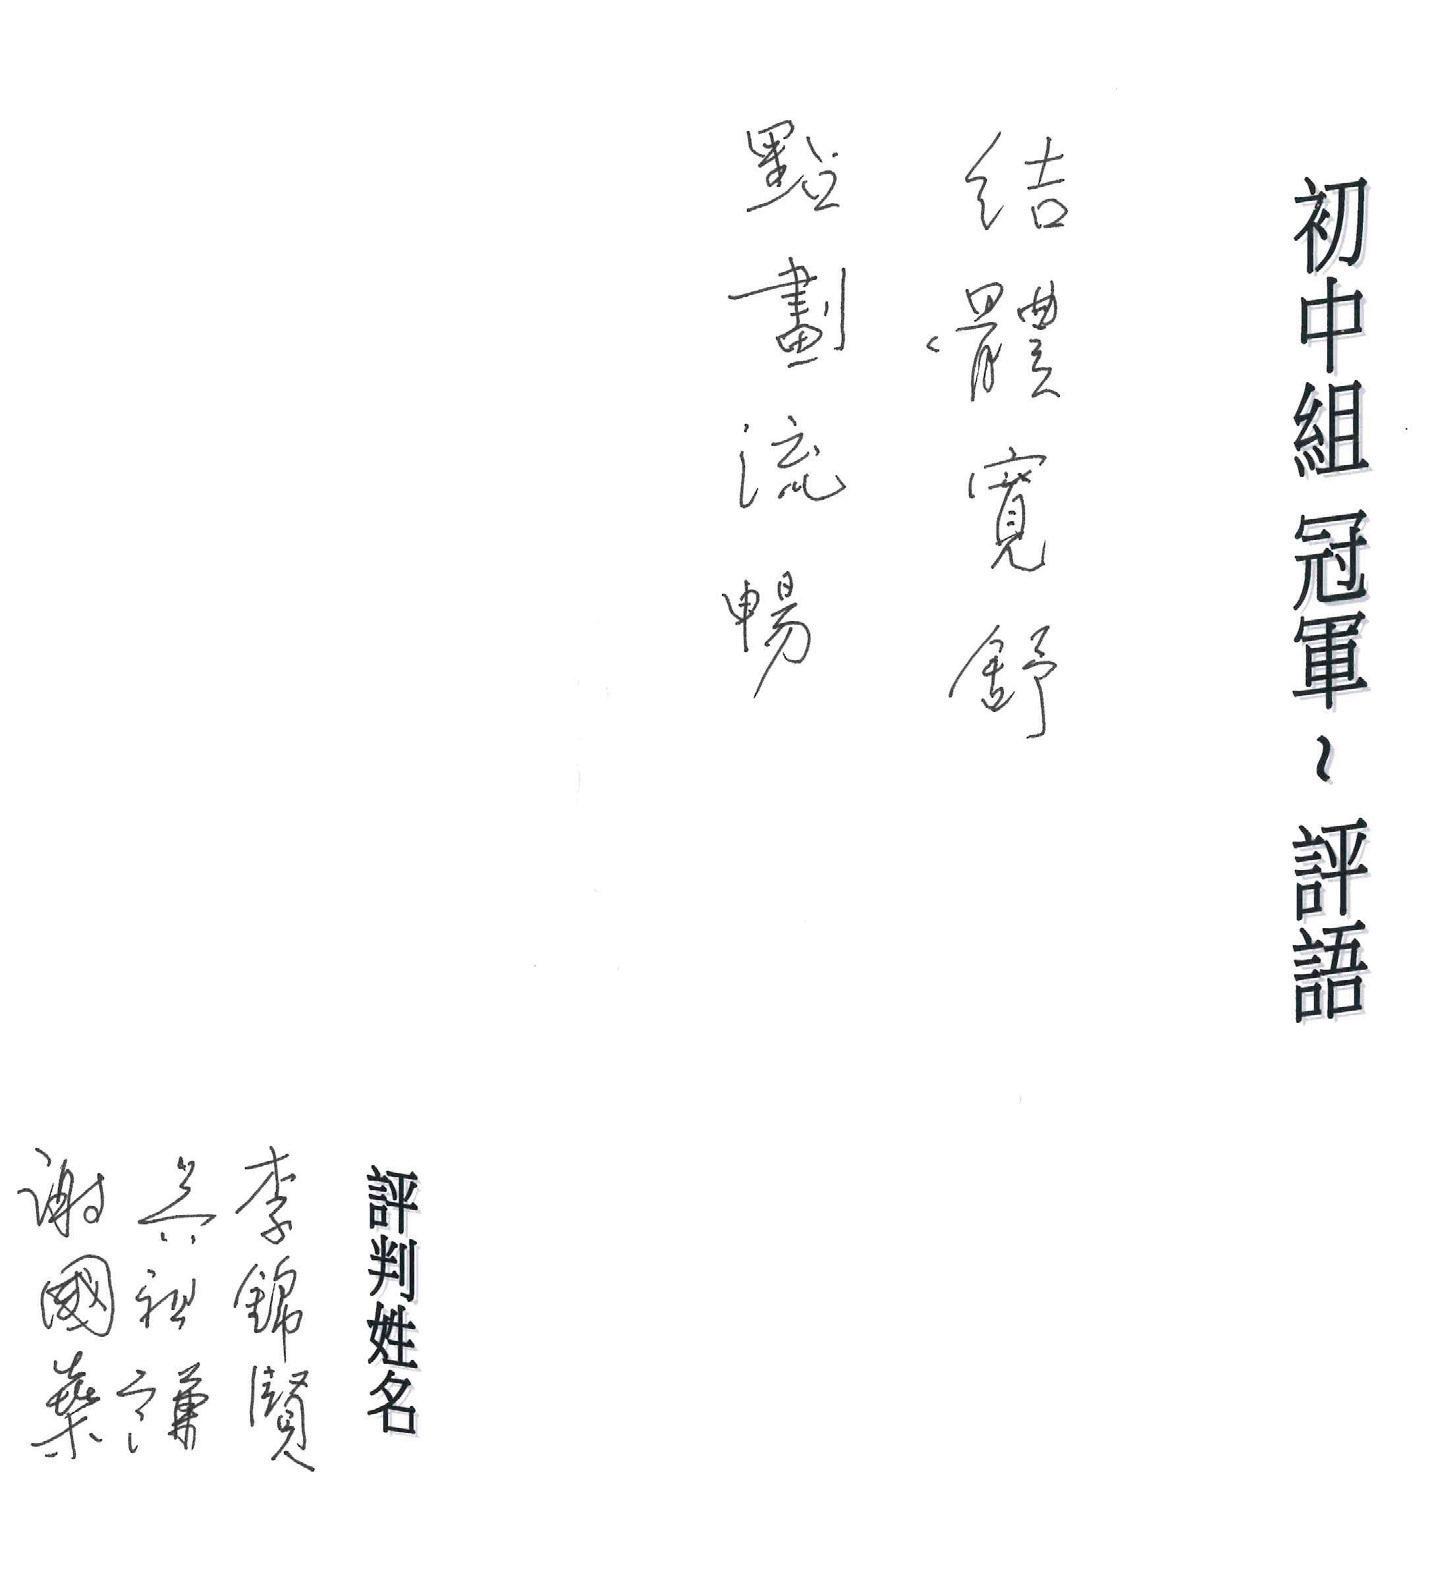 初中組 冠軍~評語
結體寬舒
點劃流暢
評判姓名
李錦賢
吳祖謙
謝國燊